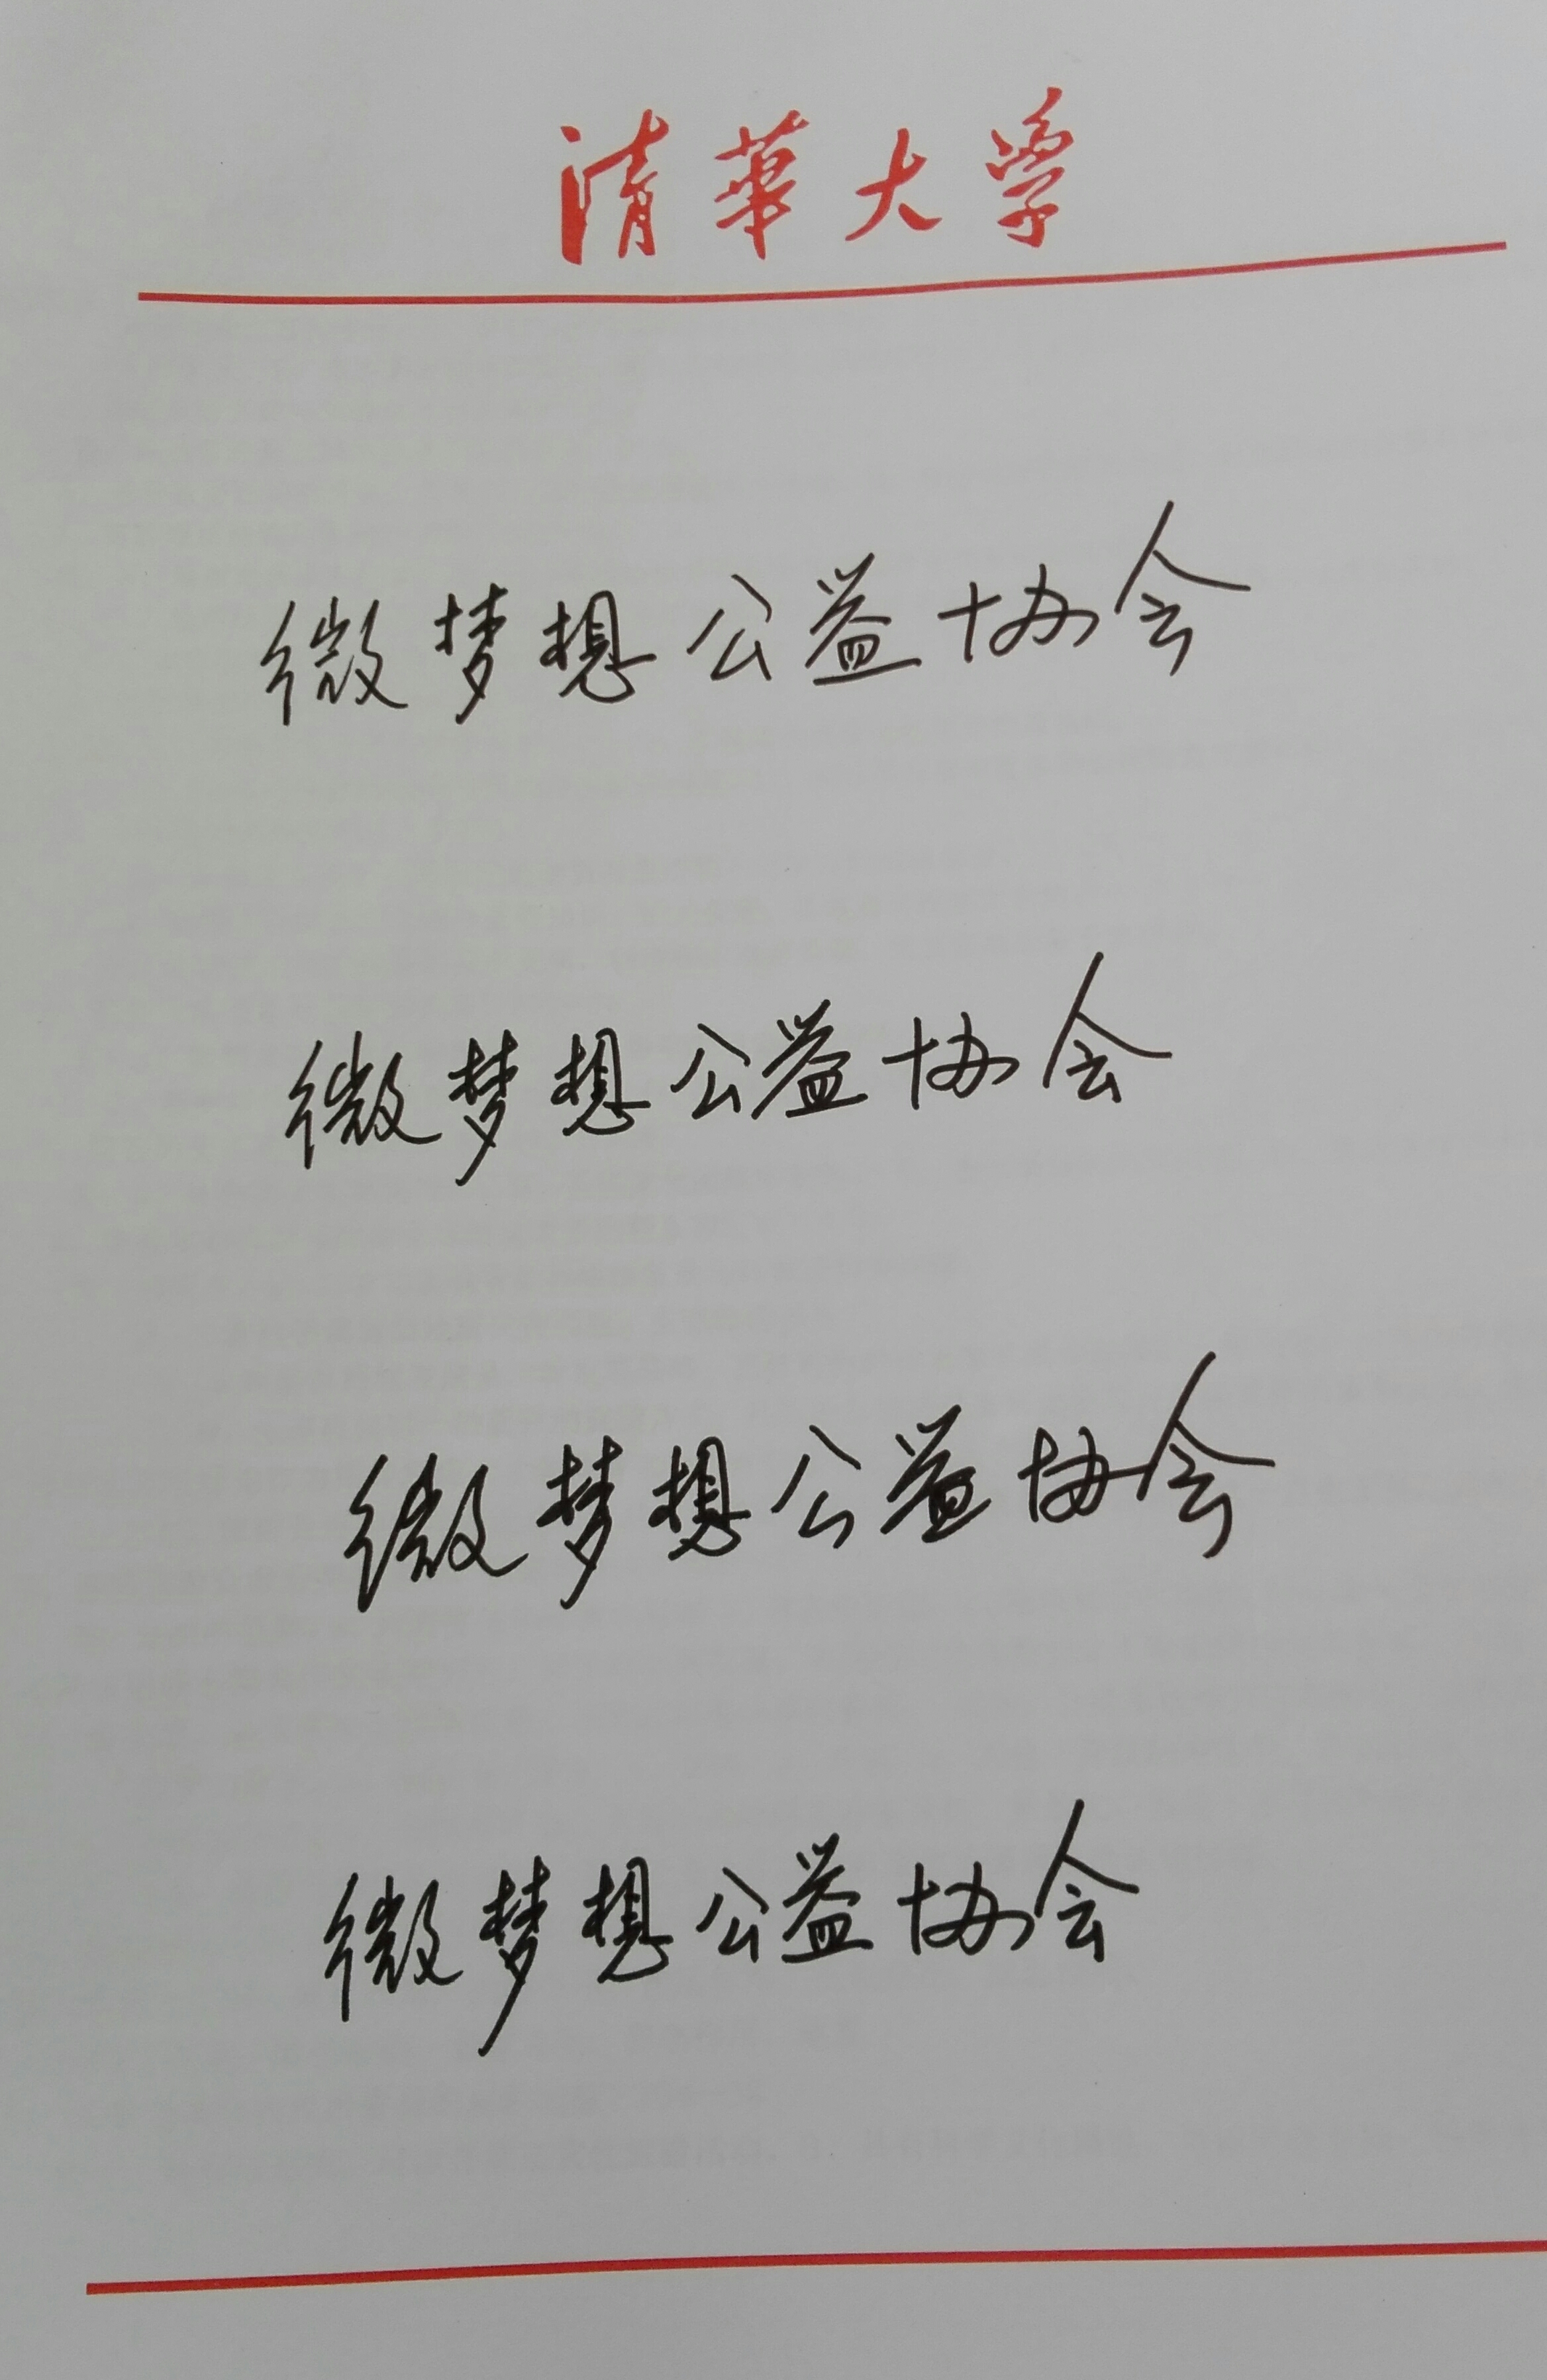 清華大学
微梦想公益协会
微梦想公益协会
微梦想公益协会
微梦想公益协会